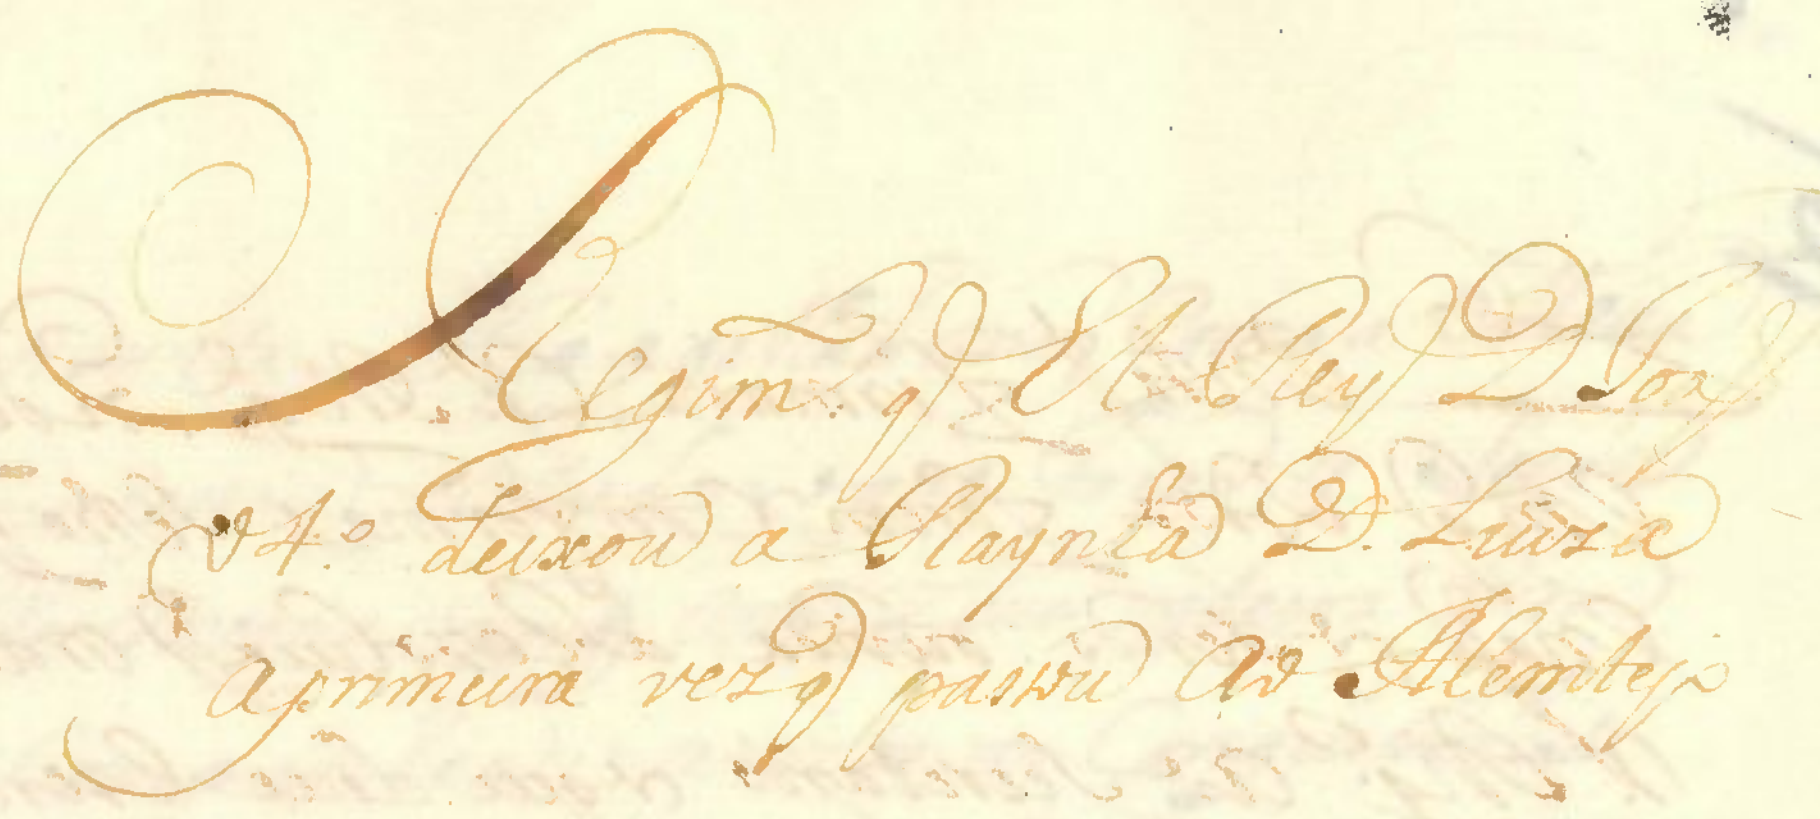 Regim.to q El Rey D. Joaõ
o 4.º deixou a Raynha D. Luiza
a primeira vez q passou ao Alemtejo